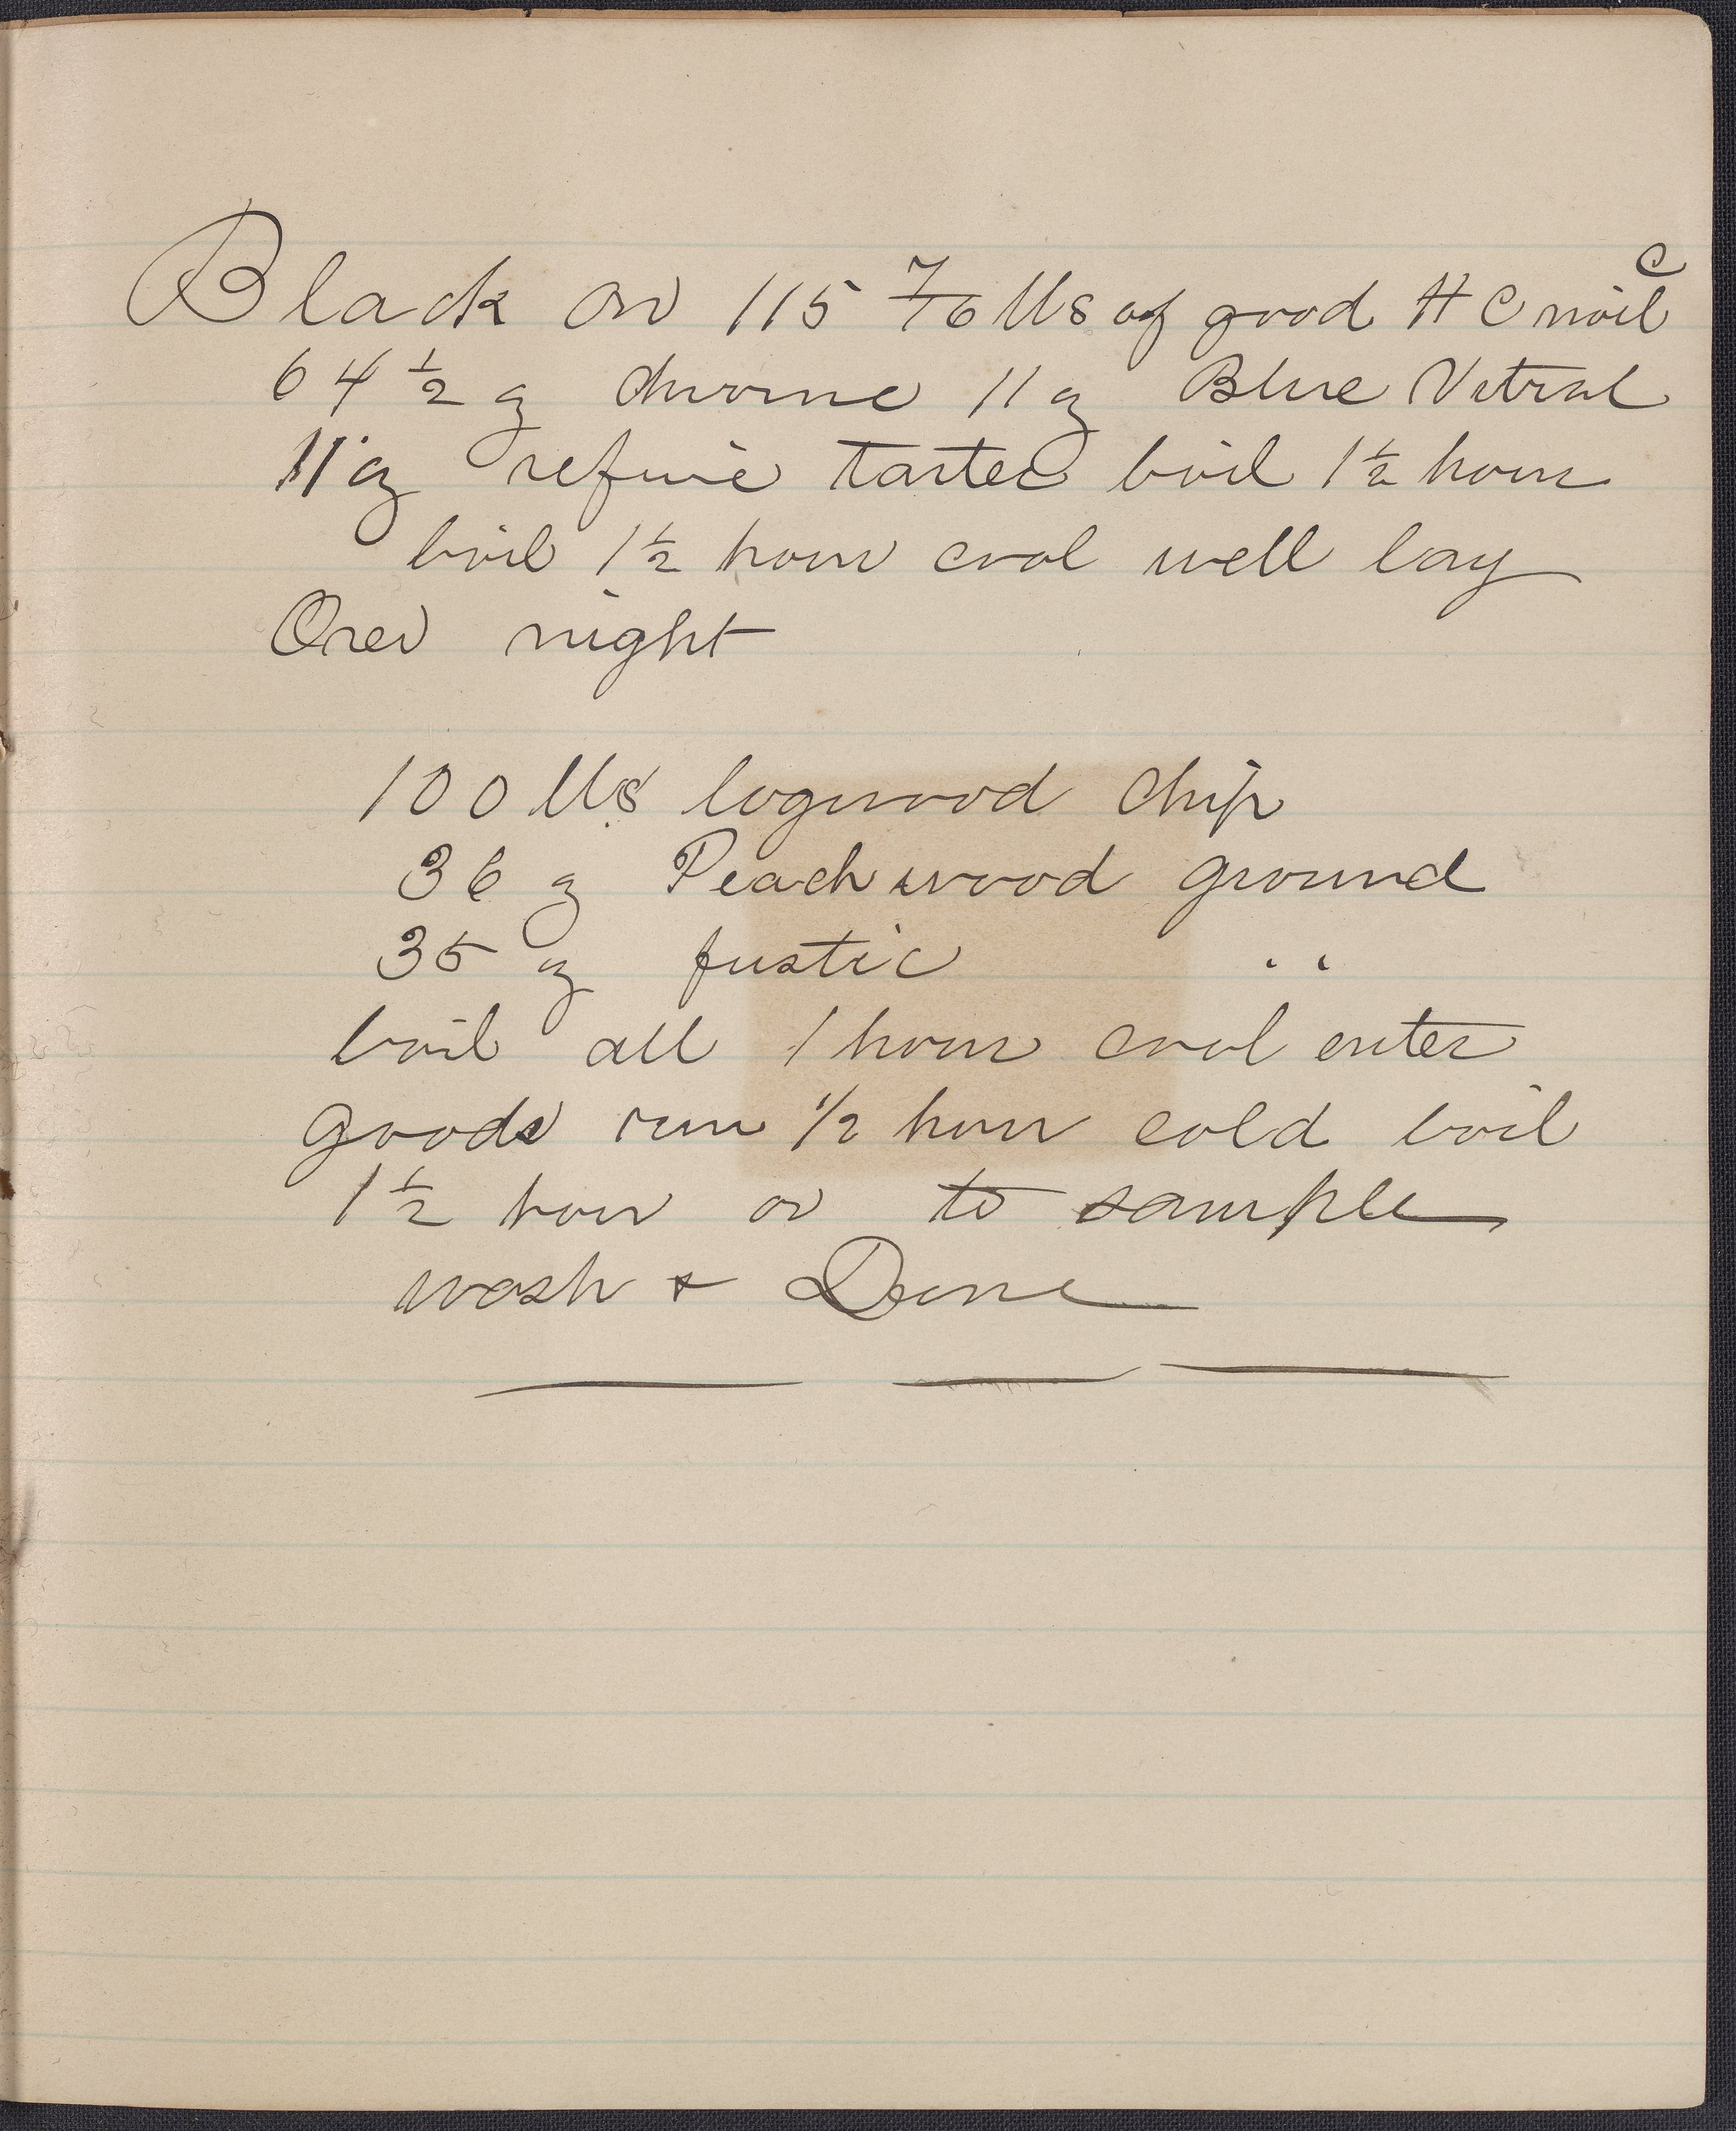 Black on 115 7/16 lbs of good H C noil c
64 ½ g chrome 11 g Blue Vitral
11 g refine tarter boil 1½ hour
boil 1½ hour cool well lay
Over night
100 lbs logwood chip
36 g Peachwood ground
35 g fustic " 
boil all 1 hour cool enter
goods run ½ hour cold boil
1½ hour or to sample
wash + Done